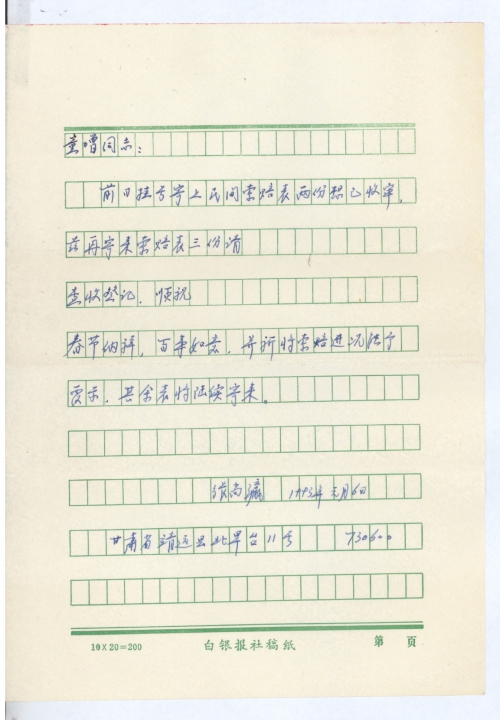 童增同志：
前日挂号寄上民间索赔表两份想已收审，
兹再寄来索赔表三份请
查收登记，顺祝
春节纳祥，百事如意，并祈将索赔进况活予
要示，其余表将陆续寄来。
张尚瀛 1993年元月6日
甘肃省靖远县北旱台11号 730600
10×20=200 白银报社稿纸 第 页